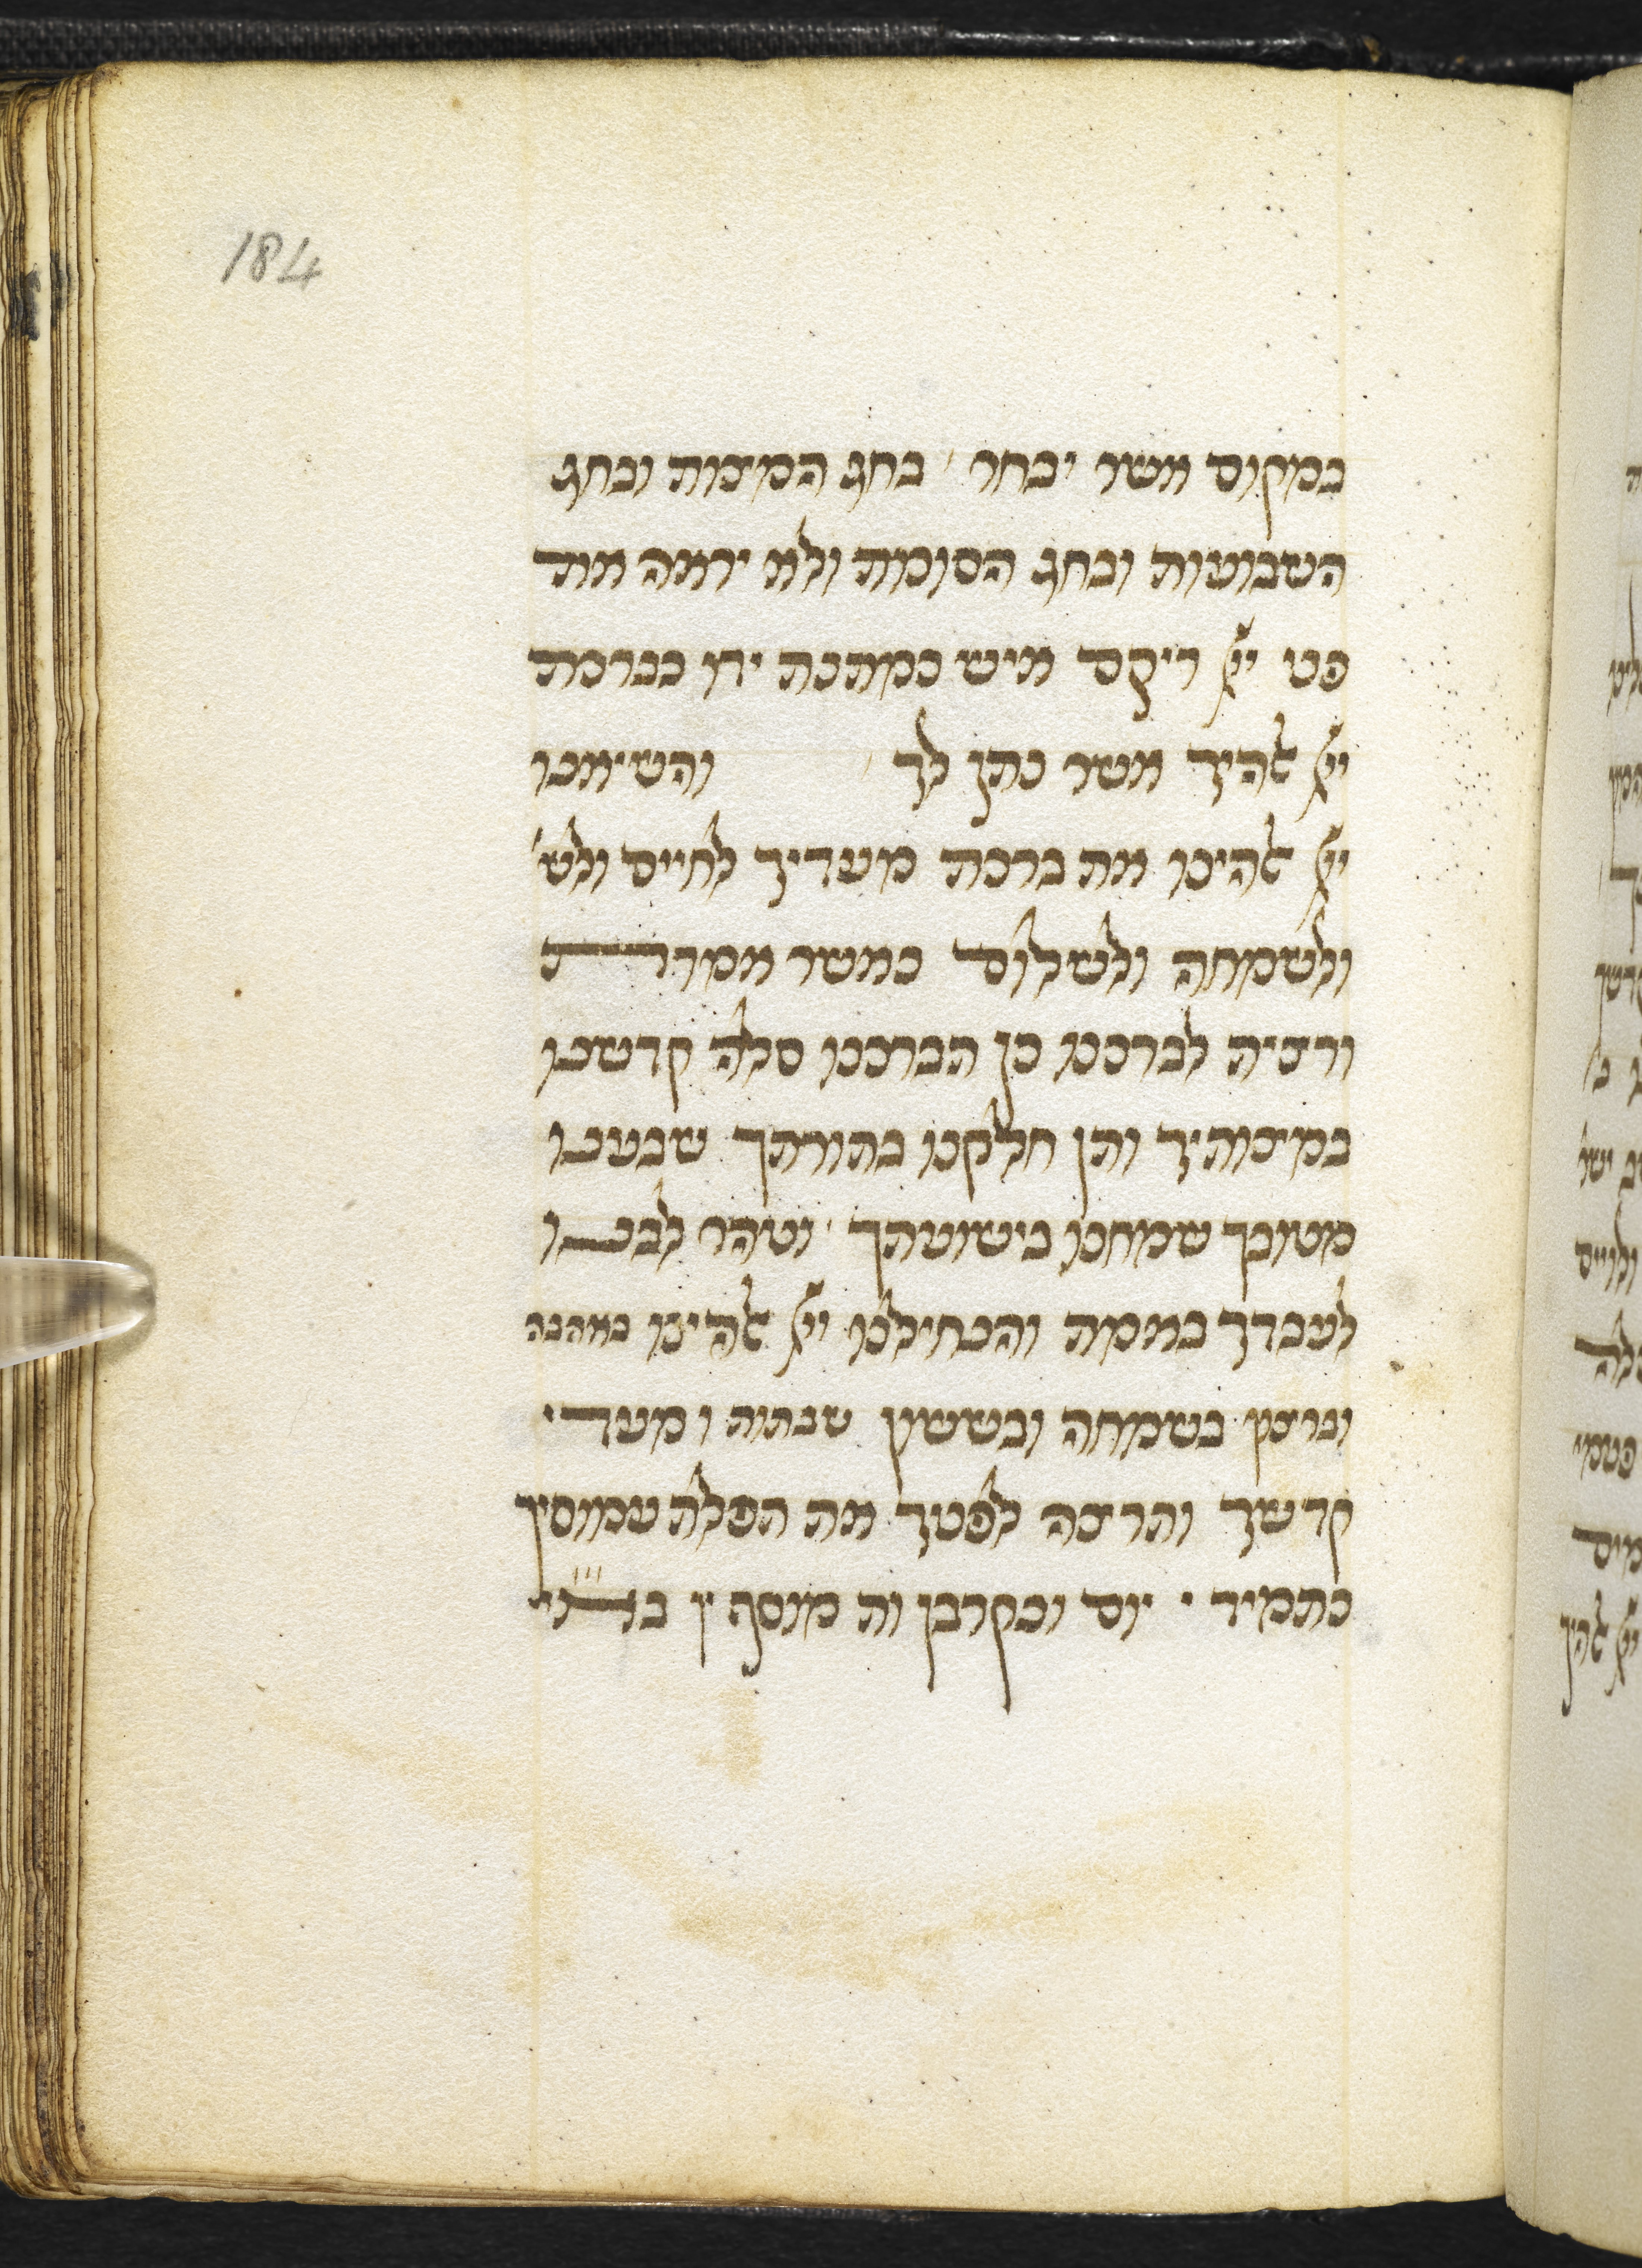 184
במקום אשר יבחר בחג המצות ובחג
השבועות ובחג הסוכות ולא יראה את
פני ייי ריקם איש כמתנת ידו כברכת
ייי אלהיך אשר נתן לך והשיאנו
ייי אלהינו את ברכת מעדיך לחיים ולש׳
ולשמחה ולשלום כאשר אמרת
ורצית לברכנו כן תברכנו סלה קדשנו
במצותיך ותן חלקנו בתורתך שבענו
מטובך שמחנו בישועתך וטהר לבנו
לעבדך באמת והנחילנו ייי אלהינו באהבה
וברצון בשמחה ובששון שבתות ומעדי
קדשך ותרצה לפניך את תפלת עמוסיך
כתמיד יום וכקרבן